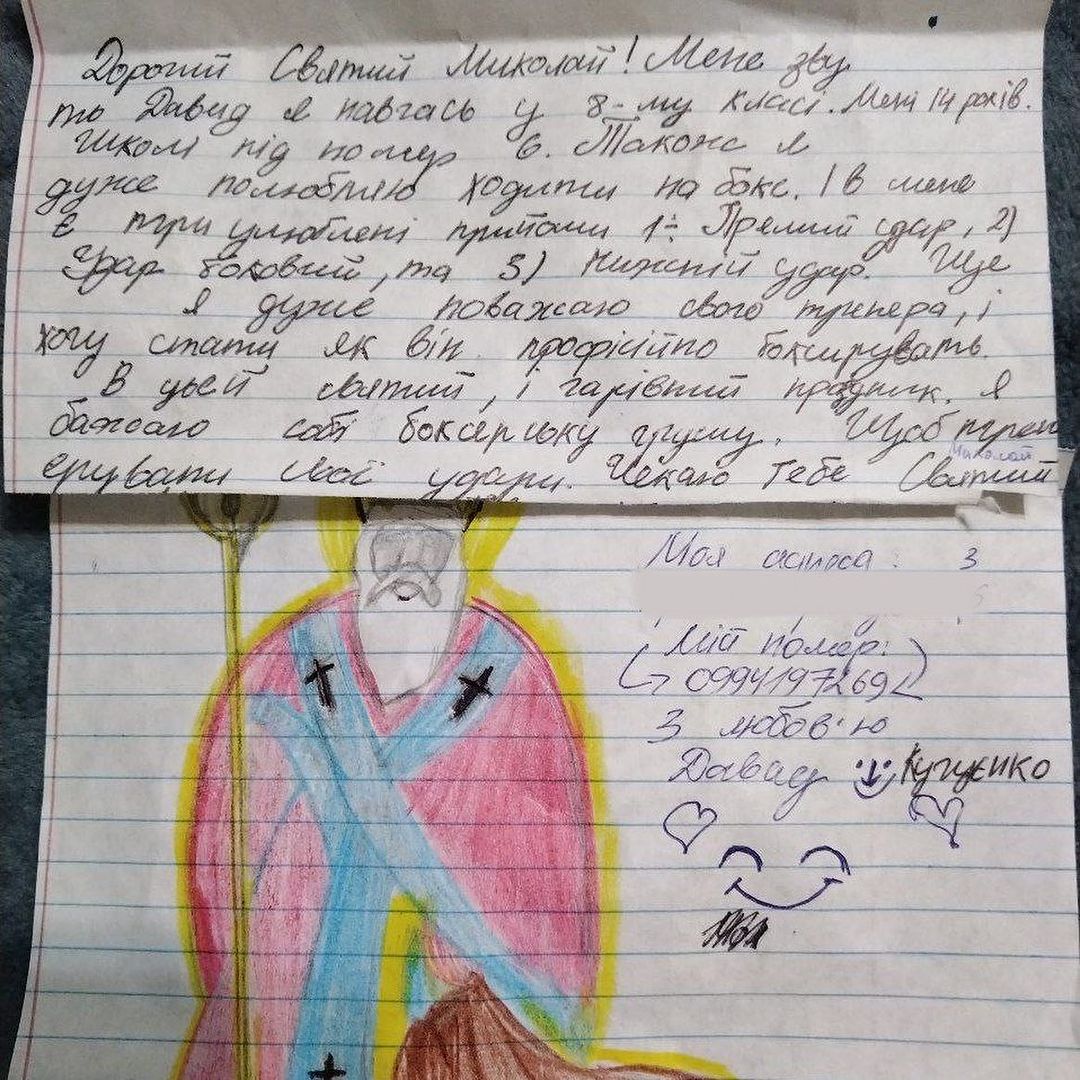 Дорогий Святий Миколай! Мене зву
ть Давид я навчась у 8-му класі. Мені 14 років.
Школі під номер 6. Також я
дуже полюбляю ходити на бокс. І в мене
є три улюблені прийоми 1÷ Прямий удар, 2)
Удар боковий, та 3) Нижній удар. Ще
я дуже поважаю свого тренера, і
хочу стати як він професійно боксирувать.
В цьей святий, і чарівний праздник. Я
бажаю собі боксерську грушу. Щоб трен
ерувати свої удари. Чекаю Тебе Святий
Миколай
Моя : 3
Мій номер:
0994197269
З любов'ю
Давид Кугуєнко